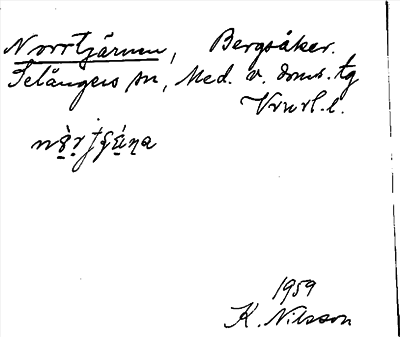 Norrtjärnen, Bergsåker.
Selångers sn, Med. v. doms. tg
Vrurl. l.
1959
K. Nilsson